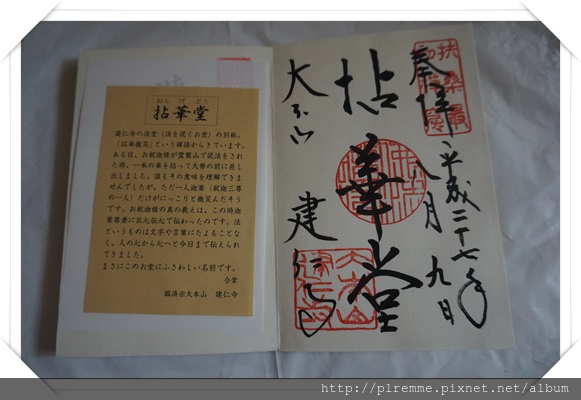 ねん げ どう
拈華堂
建仁寺の法堂（法を説くお堂）の別称。
「拈華微笑」という禅語からきています。
ある日、お釈迦様が霊鷲山で説法をされ
た時、一本の華を拈って大衆の前に差し
出しました。誰もその意味を理解できま
せんでしたが、ただ一人迦葉（釈迦三尊
の一人）だけがにっこりと微笑んだそう
です。お釈迦様の真の教えは、この時迦
葉尊者に以心伝心で伝わったのです。法
というものは文字や言葉にたよることな
く、人の心から心へと今日まで伝えられ
てきました。
まさにこのお堂にふさわしい名前です。
合掌
臨済宗大本山　建仁寺
扶桑最
初禅窟
奉拝 平成二十七年
八月九日
拈華堂
大本山 建仁寺
http://plremme.pixnet.net/album